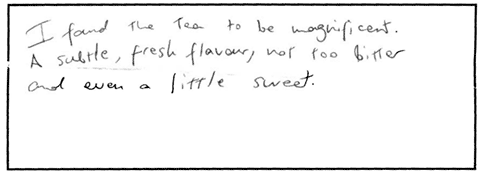 I found the Tea to be magnificent.
A subtle, fresh flavour, not too bitter
and even a little sweet.